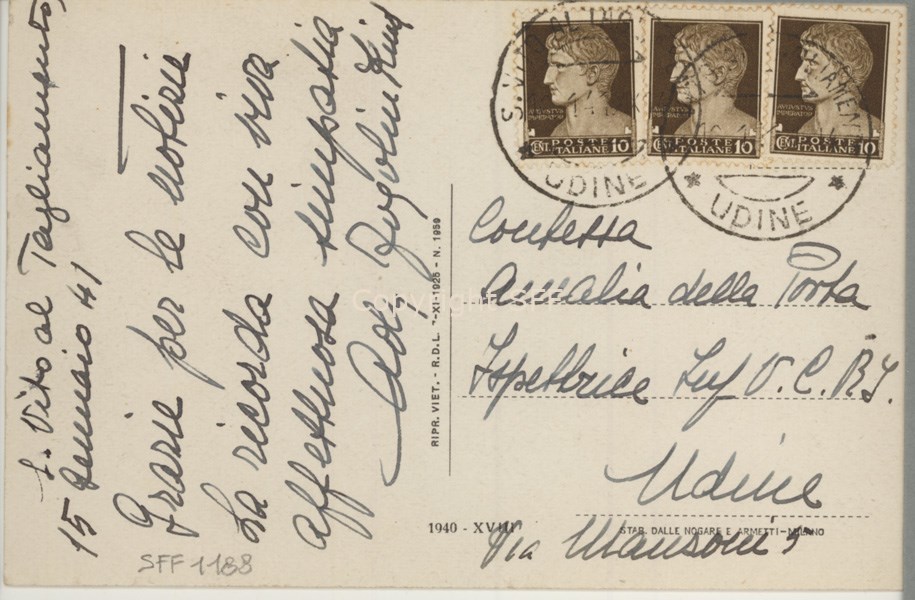 S. Vito al Tagliamento,
15 Gennaio 41
Grazie per le notizie
La ricorda con viva
affettuosa simpatia
Contessa
Amalia della Porta
Ispettrice Inf V. C. R. I.
Udine
Via Manzoni 5
AUGUSTUS
IMPERATOR
CENT. POSTE
ITALIANE 10
AUGUSTUS
IMPERATOR
CENT. POSTE
ITALIANE 10
AUGUSTUS
IMPERATOR
CENT. POSTE
ITALIANE 10
UDINE
UDINE
RIPR. VIET. - R.D.L. 7-XI-1925 - N. 1950
1940 - XVIII
STAB. DALLE NOGARE E ARMETTI - MILANO
SFF 1188
Copyright SFF